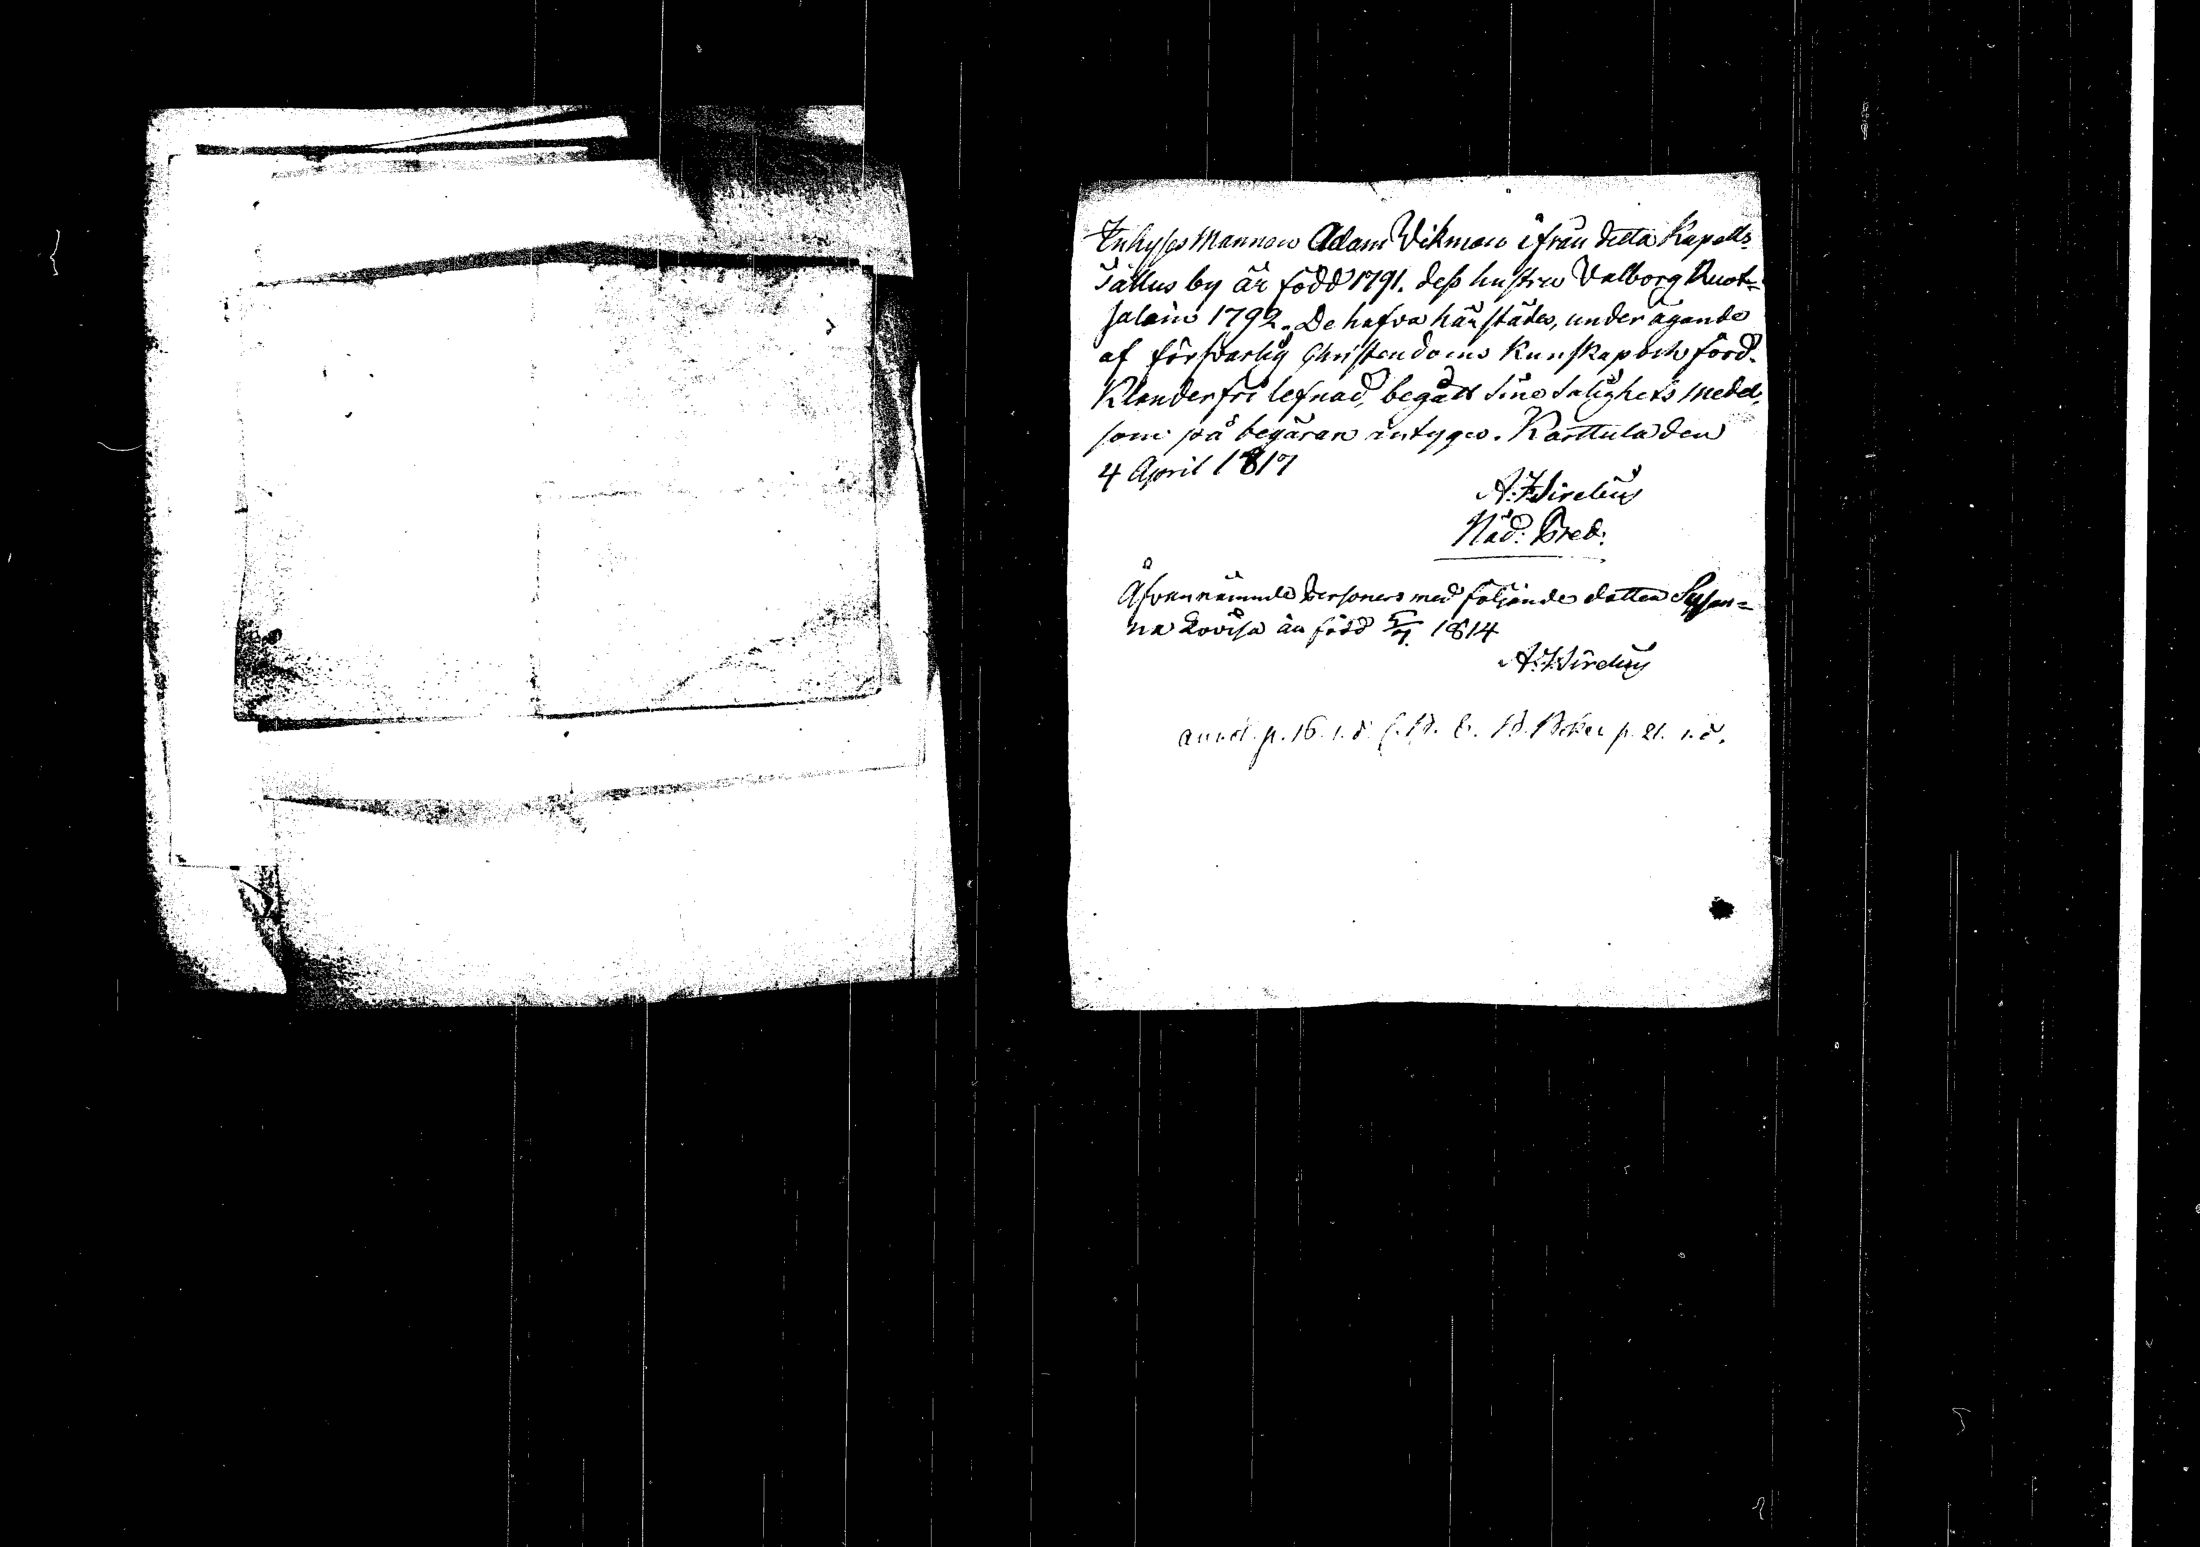 Inhyses Mannen Adam Vikman ifrån detta Kapells
Tallus by är född 1791. dess hustru Valborg Ruot=
salain 1792. De hafva härstädes, under ägande
af försvarlig Christendoms Kunskap och förd
Klanderfri lefnad, begått sine Salighets medel,
som på begäran intygas. Karttula den
4 April 1817
A: F. Sirelius
Näd: Pred:
Åfvannämnde Personers med följande dotter Susan=
na Lovisa är född 5/7. 1814
A: F. Sirelius
annot. p. 16. p. 21.